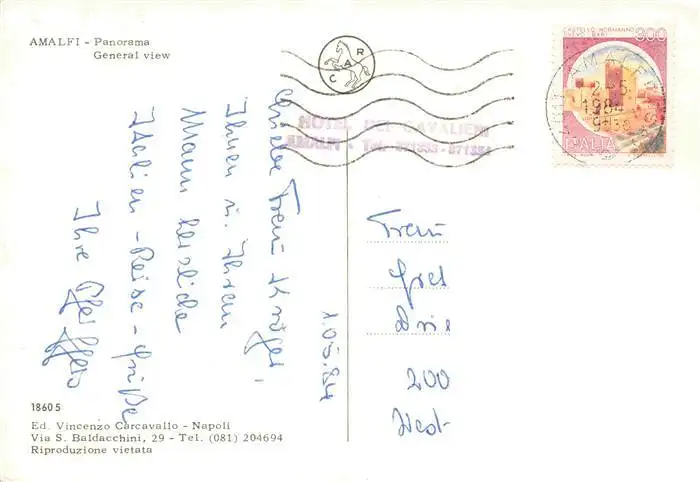 AMALFI - Panorama
General view
C A R
HOTEL DEI CAVALIERI
AMALFI - Tel.
CASTELLO NORMANNO
300
ITALIA
AMALFI
2-5
1984
Liebe Frau Krüger,
Ihnen u. Ihrem
Mann herzliche
Italien-Reise-Grüße
Ihre
1.05.84
Frau
Gret
200
Wed-
18605
Ed. Vincenzo Carcavallo - Napoli
Via S. Baldacchini, 29 - Tel. (081) 204694
Riproduzione vietata